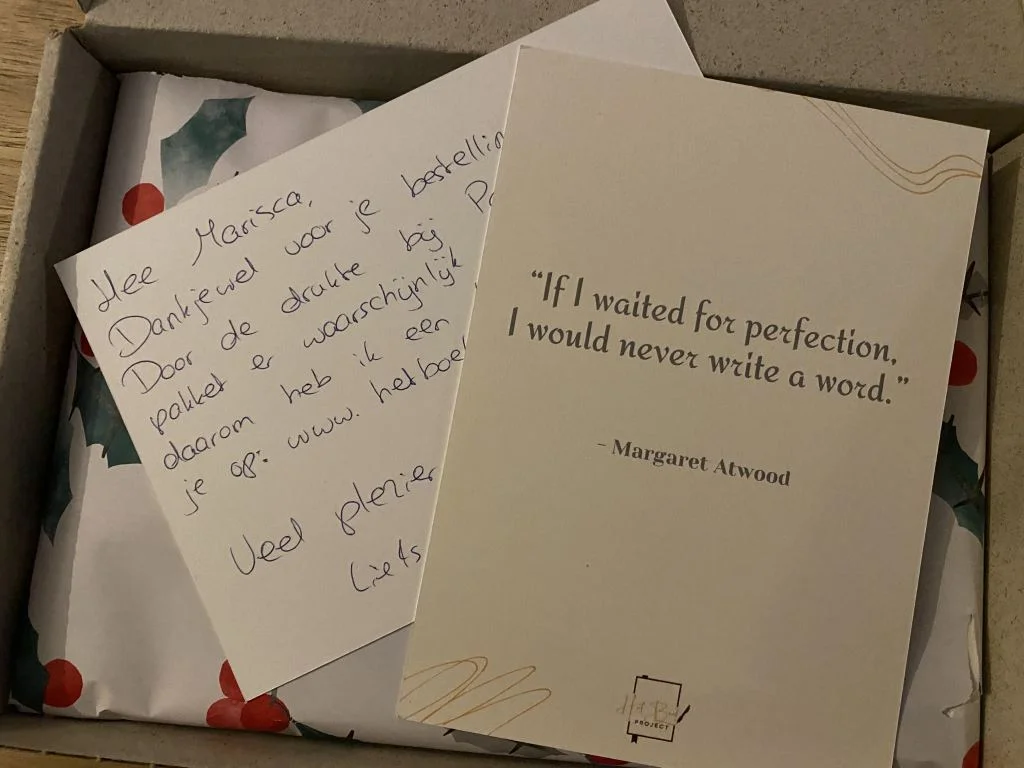 Hee Marisca,
Dankjewel voor je bestellin
Door de drukte bij Po
pakket er waarschijnlijk
daarom heb ik een
je op: www. hetboe
Veel plezier
Liefs
“If I waited for perfection,
I would never write a word.”
- Margaret Atwood
PROJECT